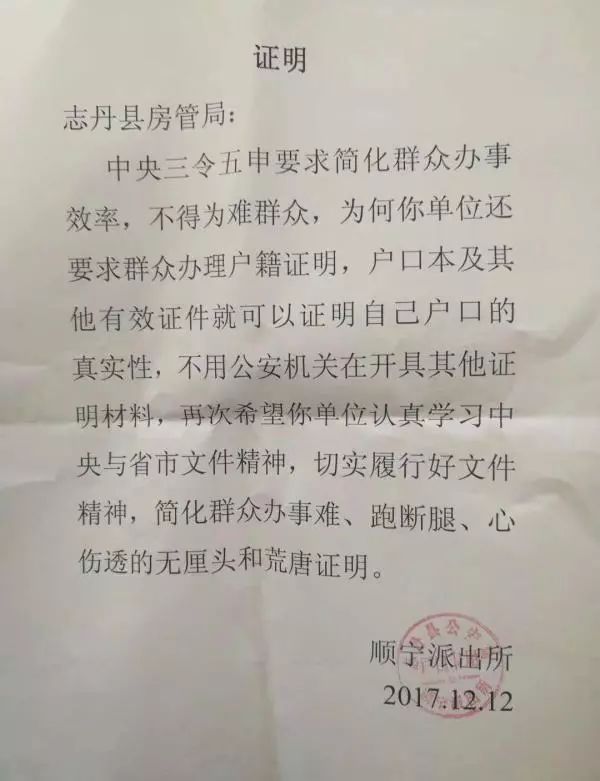 证明
志丹县房管局：
中央三令五申要求简化群众办事
效率，不得为难群众，为何你单位还
要求群众办理户籍证明，户口本及其
他有效证件就可以证明自己户口的
真实性，不用公安机关在开具其他证
明材料，再次希望你单位认真学习中
央与省市文件精神，切实履行好文件
精神，简化群众办事难、跑断腿、心
伤透的无厘头和荒唐证明。
顺宁派出所
2017.12.12